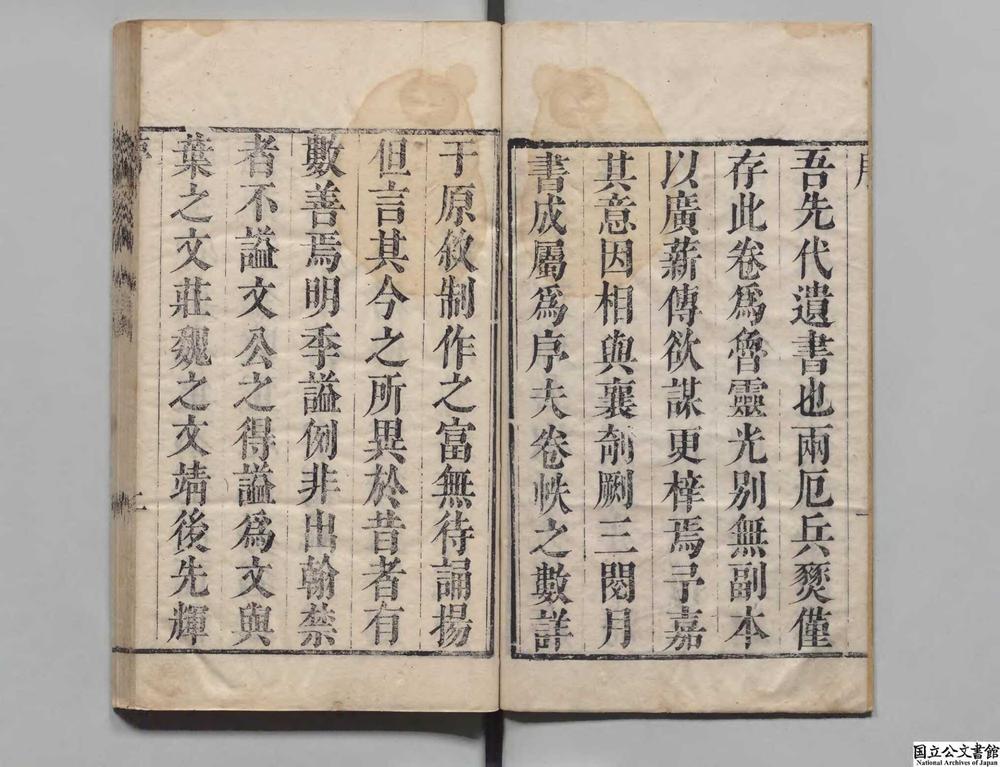 吾先代遺書也兩厄兵燹僅
存此卷爲魯靈光別無副本
以廣薪傳欲謀更梓焉予嘉
其意因相與襄剞劂三閱月
書成屬爲序夫卷帙之數詳
于原敘制作之富無待誦揚
但言其今之所異於昔者有
數善焉明季謚例非出翰禁
者不謚文公之得謚爲文與
葉之文莊魏之文靖後先輝
国立公文書館
National Archives of Japan